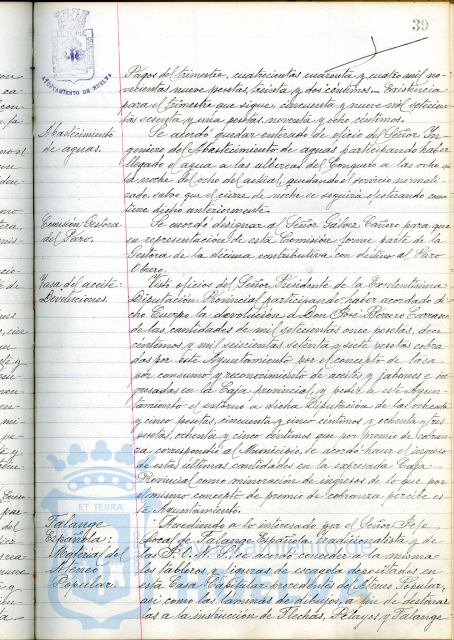 39
AYUNTAMIENTO DE HUELVA
Pagos del trimestre, cuatrocientas cuarenta y cuatro mil no-
vecientas nueve pesetas, treinta y dos céntimos.- Existencia
para el trimestre que sigue, cincuenta y nueve mil setecien-
tas setenta y una pesetas, noventa y ocho céntimos.
Abastecimiento
de aguas.
Se acordó quedar enterado de oficio del Señor In-
geniero del Abastecimiento de aguas participando haber
llegado el agua a las albercas del Conquero a las ocho de
la noche del ocho del actual, quedando el servicio normali-
zado, salvo que el cierre de noche se seguirá efectuando como
tiene dicho anteriormente.
Comisión Gestora
del Paro.
Se acordó designar al Señor Gálvez Cañero para que
en representación de esta Comisión forme parte de la
Gestora de la décima contributiva con destino al Paro
Obrero.
Tasa del aceite:
Devoluciones.
Visto oficios del Señor Presidente de la Excelentísima
Diputación Provincial participando haber acordado di-
cho Cuerpo la devolución a Don José Borrero
de las cantidades de mil setecientas once pesetas, doce
céntimos y mil seiscientas setenta y siete pesetas cobra-
das por este Ayuntamiento por el concepto de tasa
por consumo y reconocimiento de aceites y jabones e in-
gresadas en la Caja provincial y pedir a este Ayun-
tamiento el retorno a dicha Diputación de las ochenta
y cinco pesetas, cincuenta y cinco céntimos y ochenta y tres
pesetas, ochenta y cinco céntimos que por premio de cobran-
za correspondió al Municipio, se acordó hacer el ingreso
de estas últimas cantidades en la expresada Caja
Provincial como minoración de ingresos de lo que por
el mismo concepto de premio de cobranza percibe es-
te Ayuntamiento.
Falange
Española:
Material del
Ateneo
Popular.
Accediendo a lo interesado por el Señor Jefe
local de Falange Española Tradicionalista y de
las J.O.N.S. se acordó conceder a la misma
los tableros y figuras de escayola depositados en
esta Casa Capitular procedentes del Ateneo Popular,
así como las láminas de dibujos, a fin de destinar-
las a la instrucción de Flechas, Pelayos y Falange
ET TERRÆ